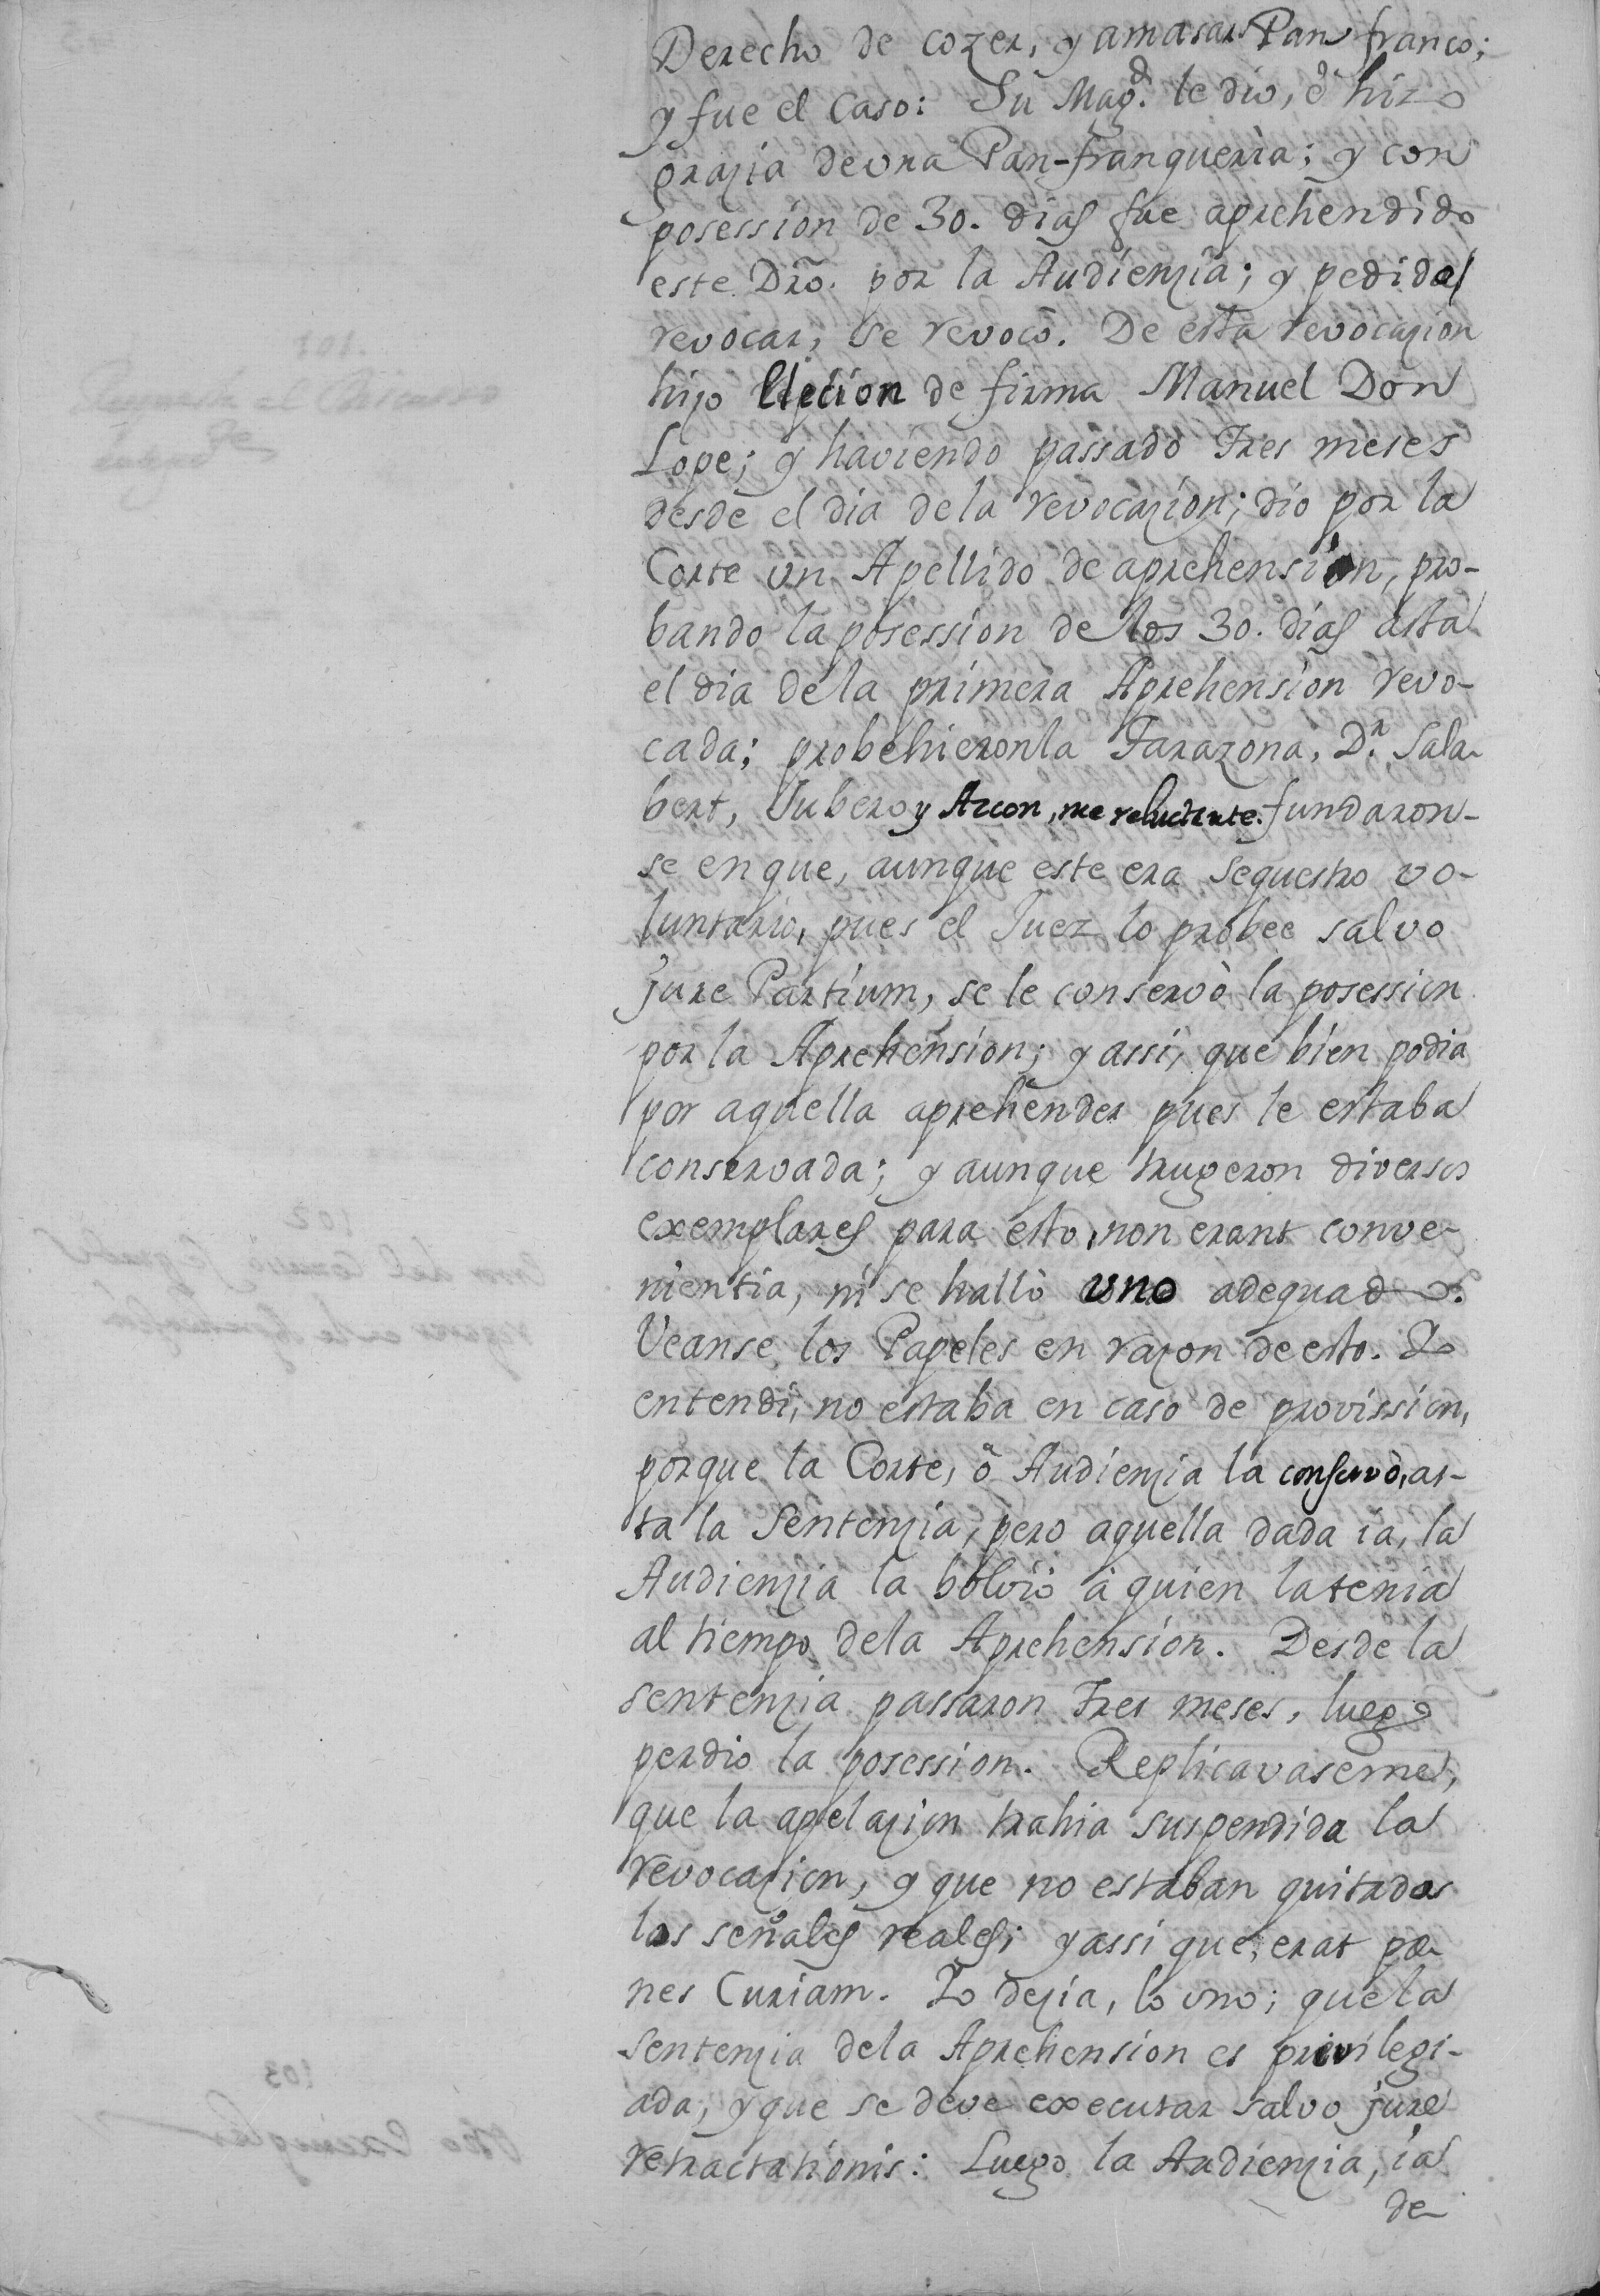 Derecho de cozer, y amasar Pan franco;
y fue el Caso: Su Magd. le dio, è hizo
grazia de vna Pan-franqueria; y con
posession de 30. dias fue aprehendido
este Dro. por la Audienzia; y pedida
revocar, se revocò. De esta revocazion
hizo Elecion de firma Manuel Don
Lope; y haviendo passado Tres meses
desde el dia de la revocazion; dio por la
Corte vn Apellido de aprehension, pro-
bando la posession de los 30. dias asta
el dia de la primera Aprehension revo-
cada; probehieronla Tarazona, Dr. Sala-
bert, Jubero y Arcon, me reluctante. fundaron-
se en que, aunque este era sequestro vo-
luntario, pues el Juez lo probee salvo
jure Partium, se le conservò la posession
por la Aprehension; y assi, que bien podia
por aquella aprehender pues le estaba
conservada; y aunque trugeron diversos
exemplares para esto, non erant conve-
nientia, ni se hallò uno adequado.
Veanse los Papeles en razon de esto. Yo
entendi, no estaba en caso de provission,
porque la Corte, ô Audienzia la conservò, as-
ta la Sentenzia, pero aquella dada ia, la
Audienzia la bolviò à quien la tenia
al tiempo dela Aprehension. Desde la
sentenzia passaron Tres meses, luego
perdio la posession. Replicavaseme,
que la apelazion trahia suspendida la
revocazion, y que no estaban quitadas
las señales reales; y assi que, erat pœ-
nes Curiam. Yo dezia, lo vno; que la
Sentenzia dela Aprehension es privilegi-
ada, y que se deve executar salvo jure
retractationis: Luego la Audienzia, ia
de